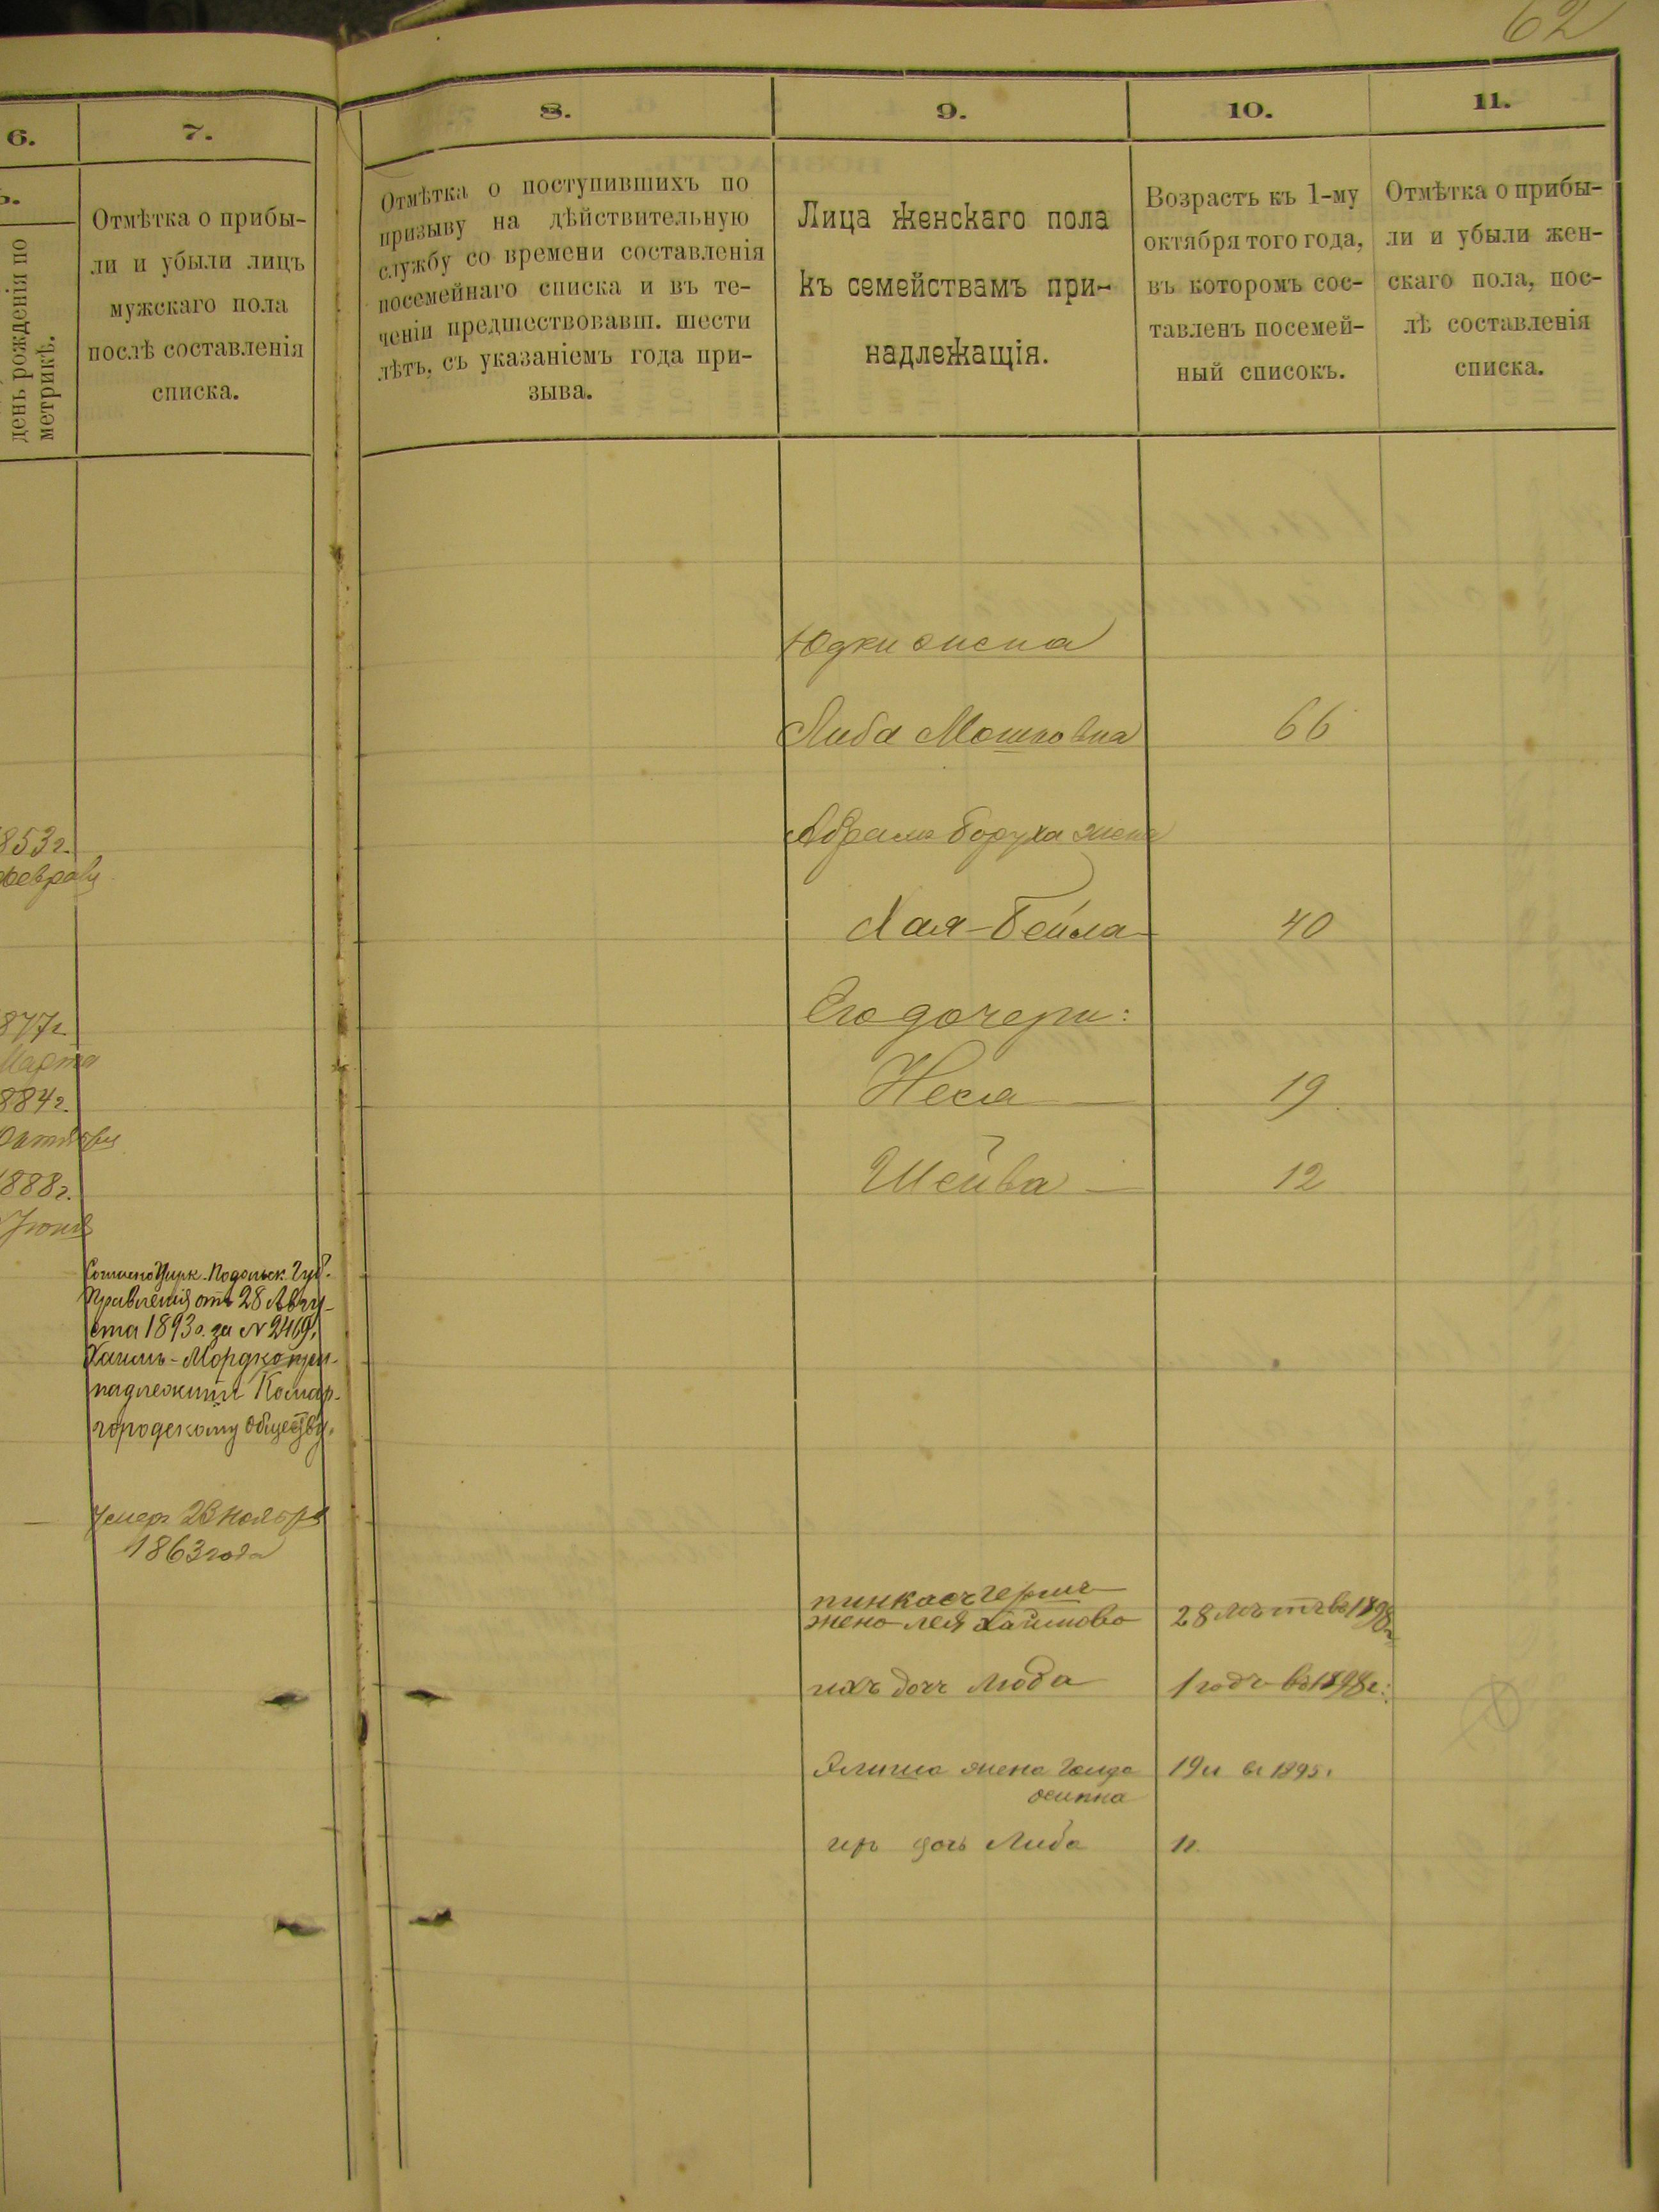 62
6.
7.
8.
9.
10.
11.
день рожденія по
метрикѣ.
Отмѣтка о прибы-
ли и убыли лицъ
мужскаго пола
послѣ составленія
списка.
Отмѣтка о поступившихъ по
призыву на дѣйствительную
службу со времени составленія
посемейнаго списка и въ те-
ченіи предшествовавш. шести
лѣтъ, съ указаніемъ года при-
зыва.
Лица женскаго пола
къ семействамъ при-
надлежащія.
Возрастъ къ 1-му
октября того года,
въ которомъ сос-
тавленъ посемей-
ный списокъ.
Отмѣтка о прибы-
ли и убыли жен-
скаго пола, пос-
лѣ составленія
списка.
Юдки жена
Либа Мошковна 66
853 г.
Февраля
Абрама Боруха жена
Хая-Бейла 40
877 г.
Марта
Его дочери:
Неся 19
884 г.
Октября
Шейва 12
1888 г.
Іюня
Согласно Цирк. Подольск. Губ.
Правленія отъ 28 Авгу-
ста 1893 г. за № 2469,
Хаимъ-Мордко при-
надлежитъ Комар-
городскому обществу.
Умеръ 23 Ноября
1863 года
пинкасъ герша
жена лея Хаимова 28 лѣтъ въ 1898 г.
ихъ дочь Люба 1 годъ въ 1898 г.
жена Голда 19 л въ 1895 г
осипна
ихъ дочь Либа